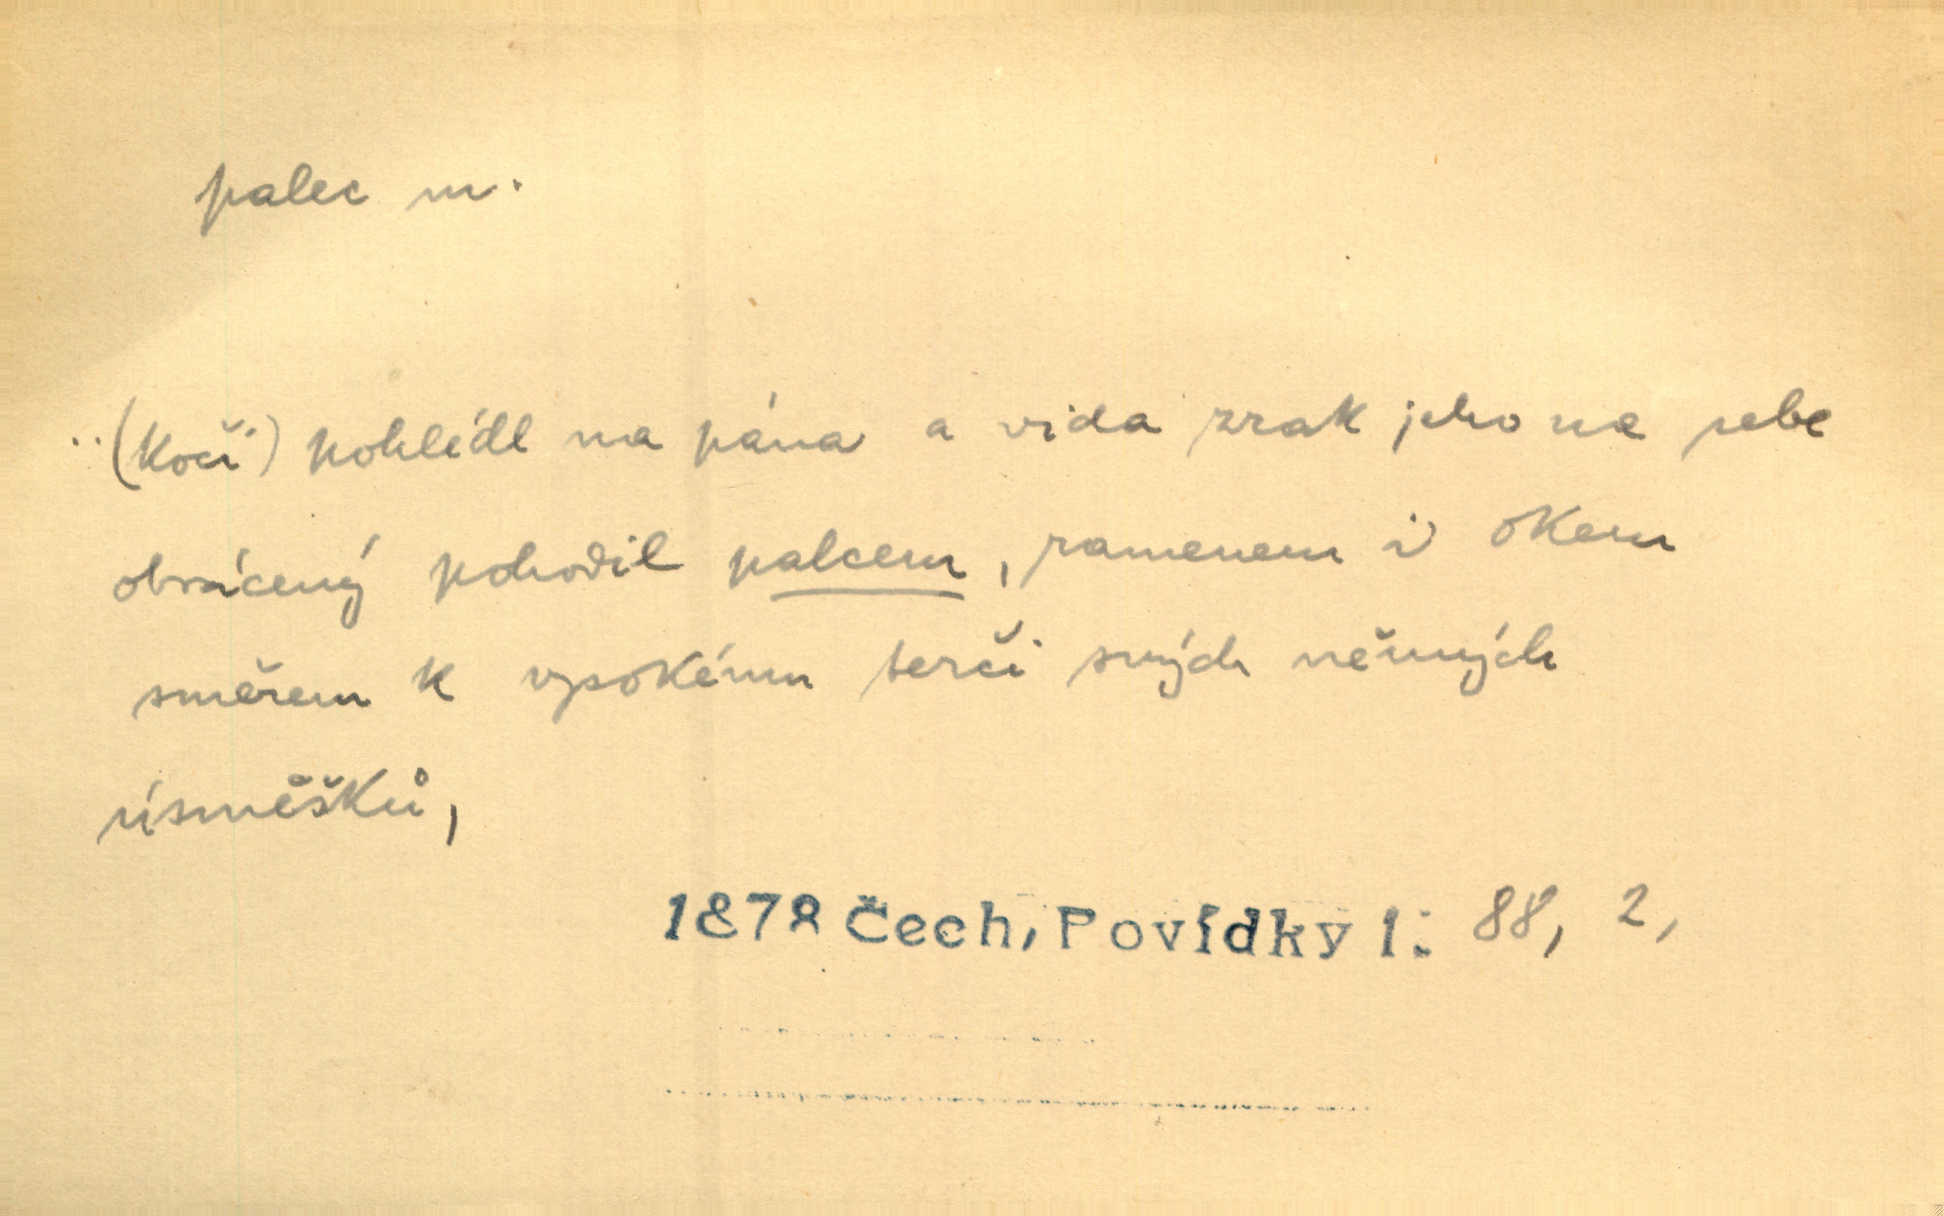 palec m.
..(Kočí) pohlédl na pána a vida zrak jeho na sebe
obrácený pohodil palcem, ramenem i okem
směrem k vysokému terči svých němých
úsměšků,
1878 Čech, Povídky 1: 88, 2,